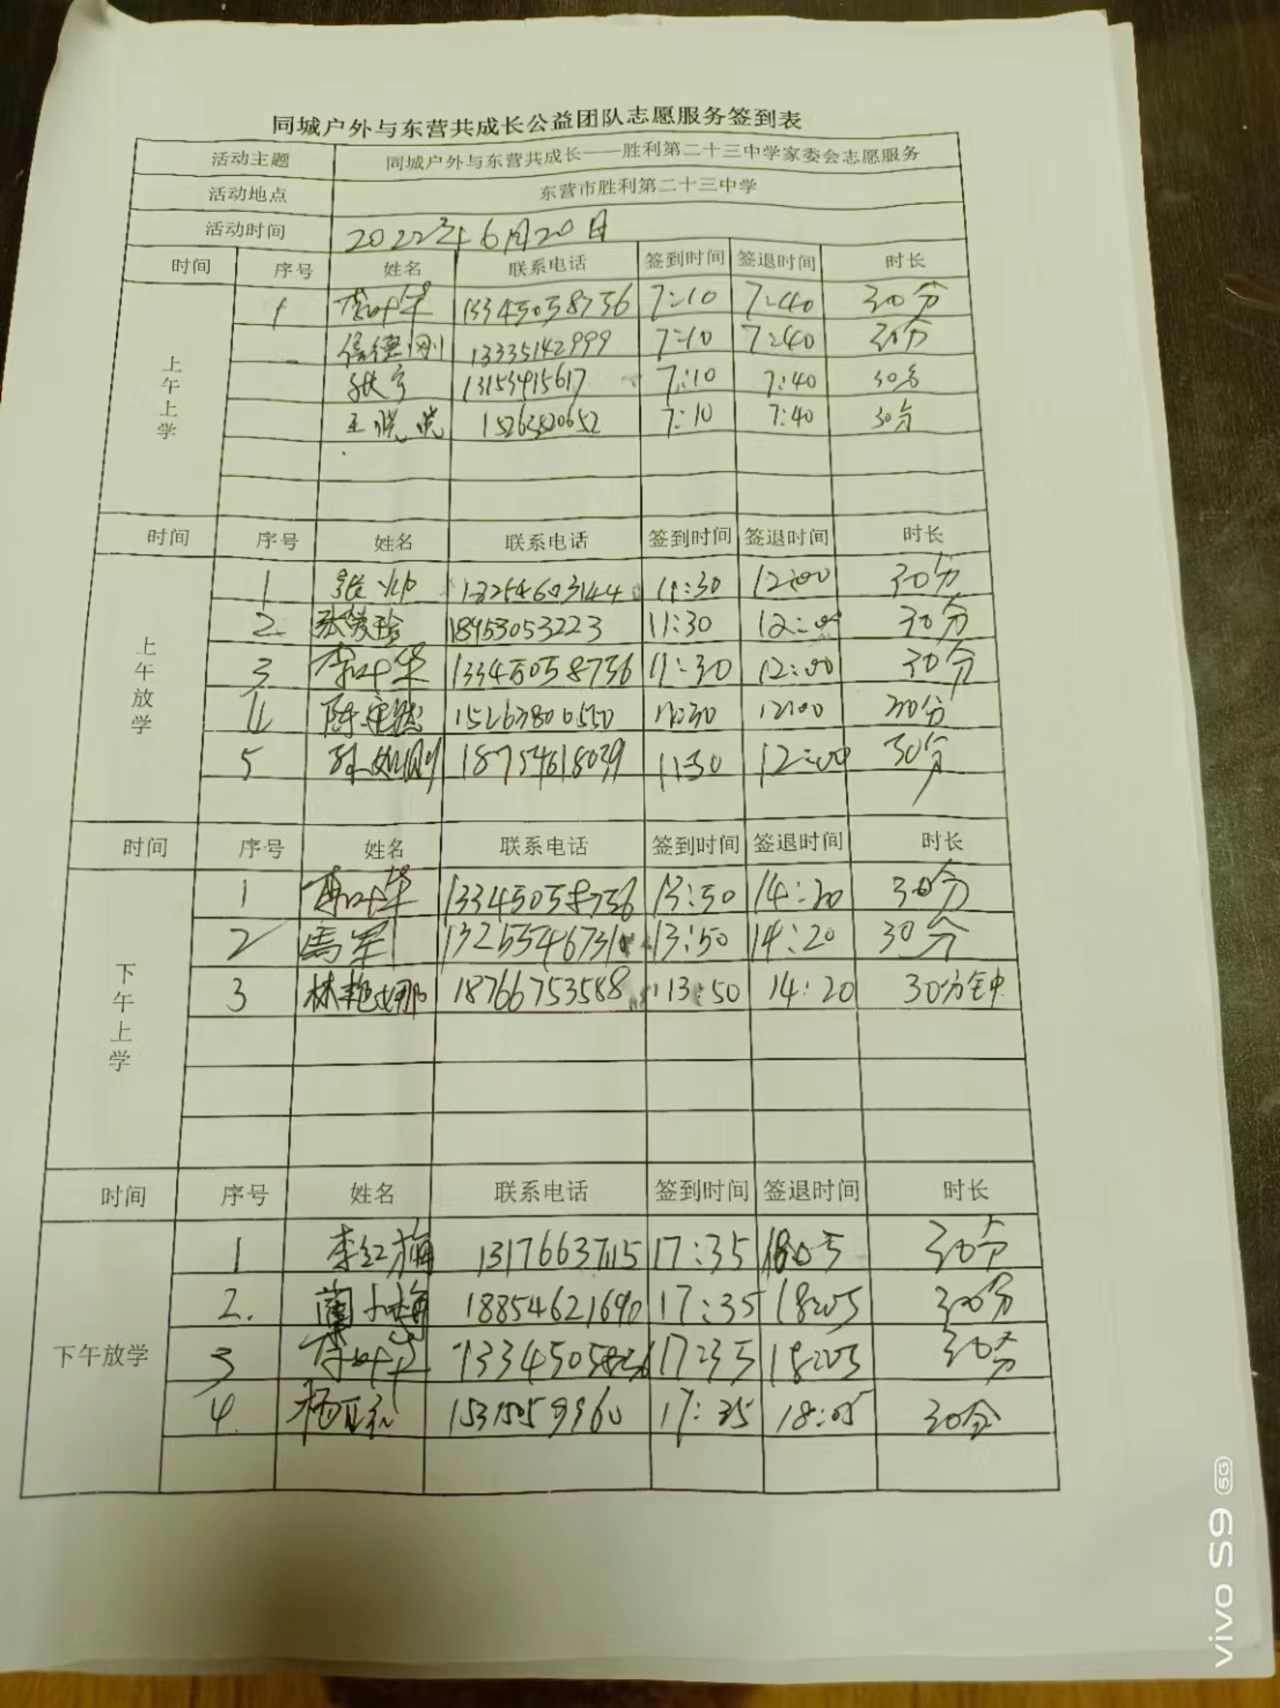 同城户外与东营共成长公益团队志愿服务签到表
活动主题 同城户外与东营共成长——胜利第二十三中学家委会志愿服务
活动地点 东营市胜利第二十三中学
活动时间 2022年6月20日
时间 序号 姓名 联系电话 签到时间 签退时间 时长
上午上学
1 李叶华 13345058736 7:10 7:40 30分
德刚 13335142999 7:10 7:40 30分
张宁 13153415617 7:10 7:40 30分
王悦悦 15263820652 7:10 7:40 30分
时间 序号 姓名 联系电话 签到时间 签退时间 时长
上午放学
1 张 13254603144 11:30 12:00 30分
2 张爱玲 18953053223 11:30 12:00 30分
3 李叶华 13345058736 11:30 12:00 30分
4 陈 15263800550 11:30 12:00 30分
5 18754618039 11:30 12:00 30分
时间 序号 姓名 联系电话 签到时间 签退时间 时长
下午上学
1 李叶华 13345058736 13:50 14:20 30分
2 马军 13:50 14:20 30分
3 林艳娜 18766753588 13:50 14:20 30分钟
时间 序号 姓名 联系电话 签到时间 签退时间 时长
下午放学
1 李红梅 13176637115 17:35 18:05 30分
2. 兰小梅 18854621690 17:35 18:05 30分
3 李叶华 17:35 18:05 30分
4. 杨 15315059960 17:35 18:05 30分
vivo S9 5G